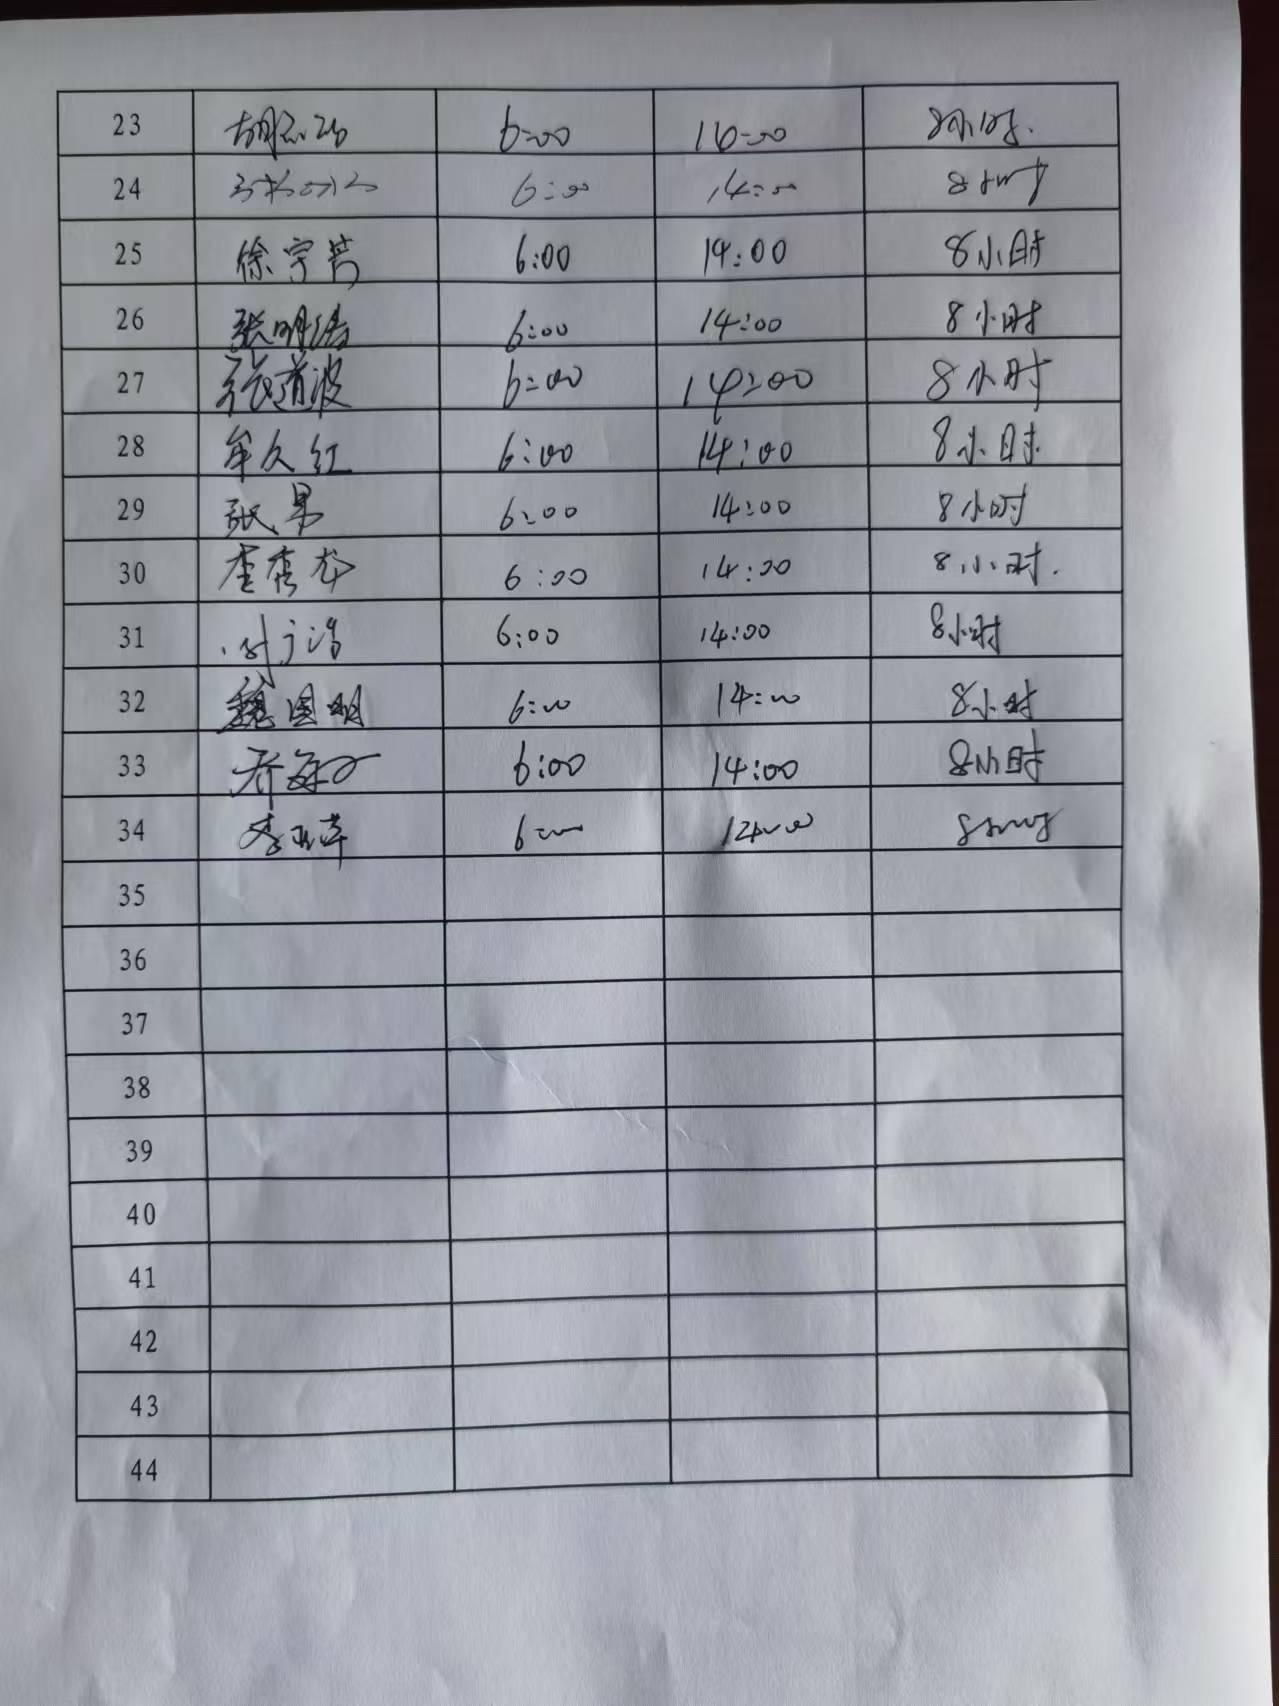 23 6:00 14:00 8小时.
24 6:00 14:00 8小时
25 徐宇芳 6:00 14:00 8小时
26 张明浩 6:00 14:00 8小时
27 张道波 6:00 14:00 8小时
28 牟久红 6:00 14:00 8小时
29 张男 6:00 14:00 8小时
30 李秀龙 6:00 14:00 8小时.
31 6:00 14:00 8小时
32 魏国明 6:00 14:00 8小时
33 6:00 14:00 8小时
34 6:00 14:00 8小时
35
36
37
38
39
40
41
42
43
44